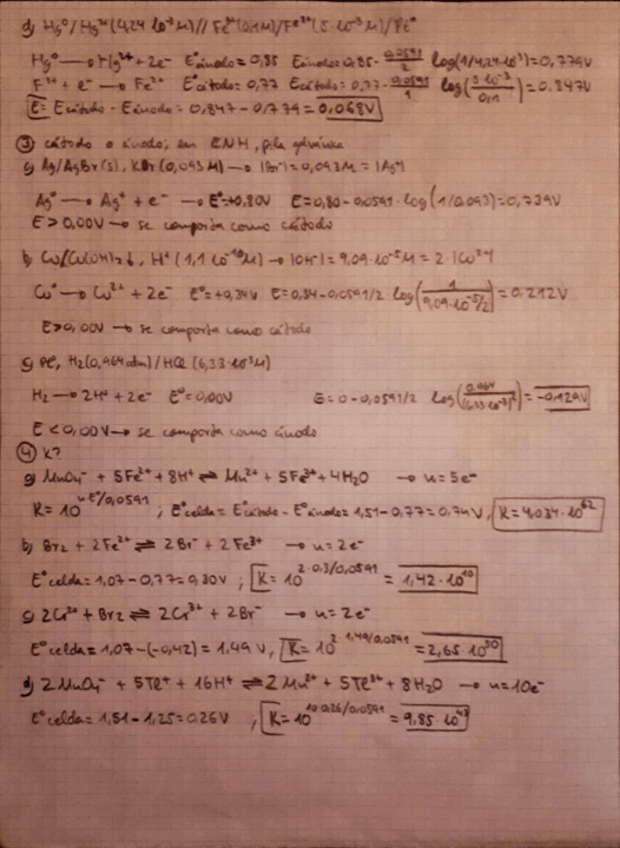 d) Hg⁰/Hg²⁺(4,24·10⁻³M)//Fe³⁺(0,1M)/Fe²⁺(5·10⁻³M)/Pt⁰
Hg⁰ → Hg²⁺ + 2e⁻ E°ánodo = 0,85 Eánodo = 0,85 - 0,0591/2 log(1/4,24·10⁻³) = 0,779V
F³⁺ + e⁻ → Fe²⁺ E°cátodo = 0,77 Ecátodo = 0,77 - 0,0591/1 log(5·10⁻³/0,1) = 0,847V
E = Ecátodo - Eánodo = 0,847 - 0,779 = 0,068V
③ cátodo o ánodo; en ENH, pila galvánica
a) Ag/AgBr(s), KBr(0,093M) → |Br⁻| = 0,093M = |Ag⁺|
Ag⁰ → Ag⁺ + e⁻ → E° = +0,80V E = 0,80 - 0,0591·log(1/0,093) = 0,739V
E > 0,00V → se comporta como cátodo
b) Cu/Cu(OH)₂↓, H⁺(1,1·10⁻¹⁰M) → |OH⁻| = 9,09·10⁻⁵M = 2·|Cu²⁺|
Cu⁰ → Cu²⁺ + 2e⁻ E° = +0,34V E = 0,34 - 0,0591/2 log(1/9,09·10⁻⁵/2) = 0,212V
E > 0,00V → se comporta como cátodo
c) Pt, H₂(0,964atm)/HCl(6,33·10⁻³M)
H₂ → 2H⁺ + 2e⁻ E° = 0,00V E = 0 - 0,0591/2 log(0,964/(6,33·10⁻³)²) = -0,129V
E < 0,00V → se comporta como ánodo
④ K?
a) MnO₄⁻ + 5Fe²⁺ + 8H⁺ ⇌ Mn²⁺ + 5Fe³⁺ + 4H₂O → n = 5e⁻
K = 10^(n·E°/0,0591) ; E°celda = E°cátodo - E°ánodo = 1,51 - 0,77 = 0,74V, K = 4,034·10⁶²
b) Br₂ + 2Fe²⁺ ⇌ 2Br⁻ + 2Fe³⁺ → n = 2e⁻
E°celda = 1,07 - 0,77 = 0,30V ; K = 10^(2·0,3/0,0591) = 1,42·10¹⁰
c) 2Cr²⁺ + Br₂ ⇌ 2Cr³⁺ + 2Br⁻ → n = 2e⁻
E°celda = 1,07 - (-0,42) = 1,49V, K = 10^(2·1,49/0,0591) = 2,65·10⁵⁰
d) 2MnO₄⁻ + 5Tl⁺ + 16H⁺ ⇌ 2Mn²⁺ + 5Tl³⁺ + 8H₂O → n = 10e⁻
E°celda = 1,51 - 1,25 = 0,26V , K = 10^(10·0,26/0,0591) = 9,85·10⁴³